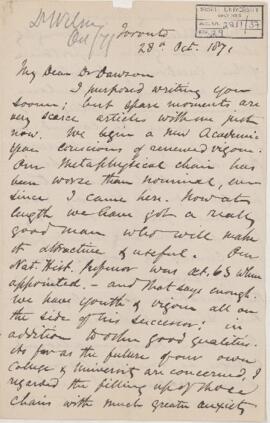 Dr Wilson
Oct/71
Toronto
28th Oct. 1871
My Dear Dr Dawson
I purposed writing you
sooner; but spare moments are
very scarce articles with me just
now. We begin a new Academic
year conscious of renewed vigour.
Our Metaphysical chair has
been worse than nominal, ever
since I came here. Now at
length we have got a really
good man who will make
it attractive & useful. Our
Nat. Hist. Professor was aet. 63 when
appointed, – and that says enough.
We have youth & vigour all on
the side of his successor; in
addition to other good qualities.
As far as the future of our own
College & University are concerned, I
regarded the filling up of those
chairs with much greater anxiety